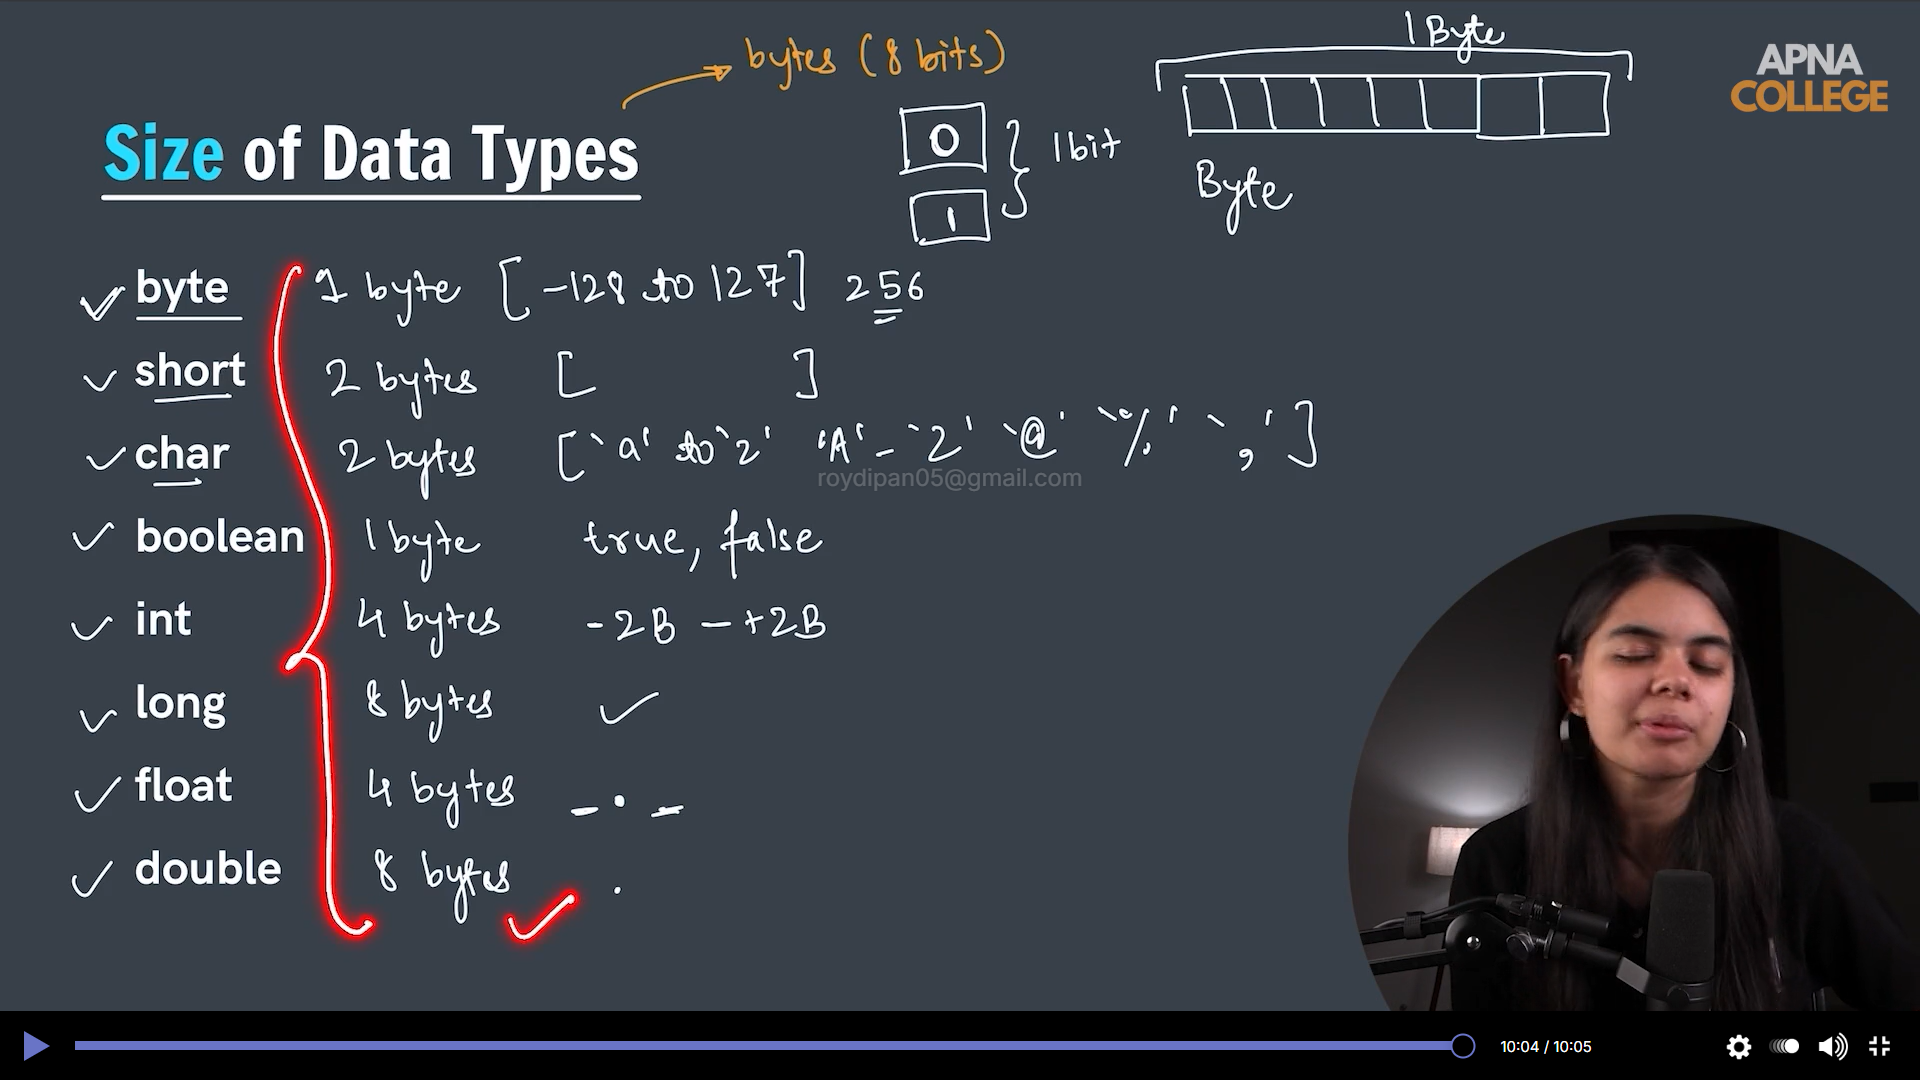 1 Byte
bytes (8 bits)
APNA
COLLEGE
Size of Data Types
0
1
1 bit
Byte
byte 1 byte [-128 to 127] 256
short 2 bytes [ ]
char 2 bytes ['a' to 'z' 'A' - 'Z' '@' '%' ',']
roydipan05@gmail.com
boolean 1 byte true, false
int 4 bytes -2B - +2B
long 8 bytes
float 4 bytes _._
double 8 bytes .
10:04 / 10:05